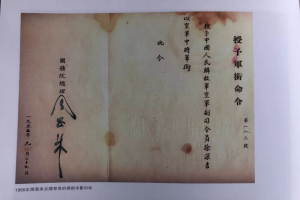 授予軍銜命令
授予中國人民解放軍空軍副司令員徐深吉
以空軍中將軍銜
此令
國務院總理
周恩來
一九五五年九月